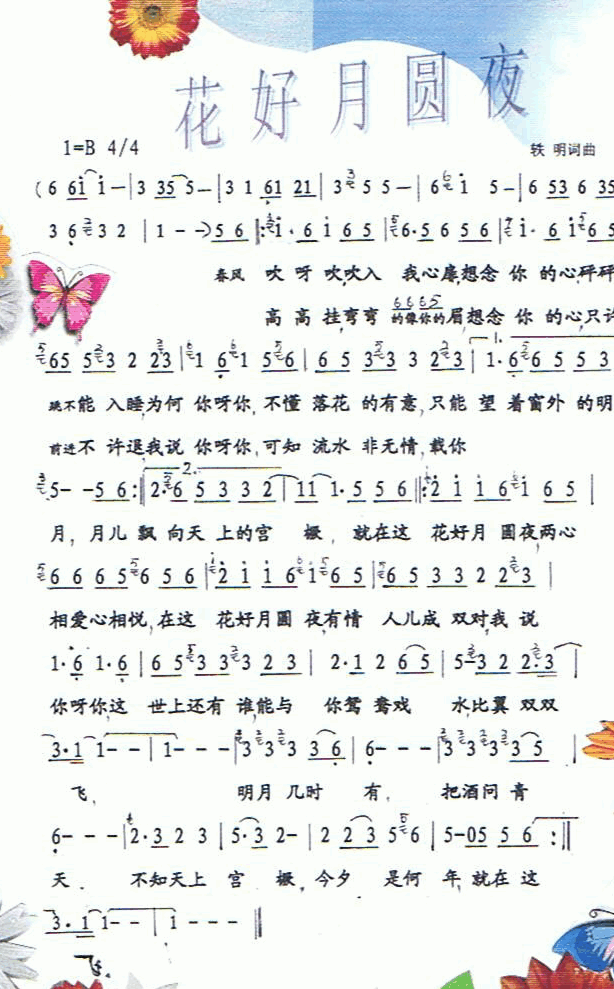 花好月圆夜
1=B 4/4
轶 明词曲
(6 6i i－|3 35 5－|3 1 61 21|3 35 5－|6 6i 5－|6 53 6 35
3 6 3 2 |1 - -)5 6 ‖:i· 6 i 6 5 |6·5 6 5 6 |i· 6 i 6 5
春风 吹 呀 吹吹入 我心扉想念 你 的心砰砰
6 6 6 5
高 高 挂弯弯 的像你的眉想念 你 的心只许
1.
65 5 3 2 23 |1 6 1 5 6 |6 5 3 3 2 3 |1· 6 6 5 5 3
跳不能 入睡为何 你呀你,不懂 落花 的有意,只能 望 着窗外 的明
前进不 许退我说 你呀你,可知 流水 非无情,载你
2.
5- -5 6:‖2· 6 5 3 3 2 |1 1 1· 5 5 6 ‖:2 i i 6 i 6 5 |
月, 月儿 飘 向天 上的宫 , 就在这 花好月 圆夜两心
6 6 6 5 6 5 6 |2 i i 6 i 6 5 |6 5 3 3 2 2 3 |
相爱心相悦,在这 花好月圆 夜有情 人儿成 双对我 说
1· 6 1· 6 | 6 5 3 3 3 2 3 | 2· 1 2 6 5 | 5-3 2 2·3 |
你呀你,这 世上还有 谁能与 你鸳 鸯戏 水比翼 双双
3·1 1- - | 1- - -|3 3 3 3 3 6 |6- - -|3 3 3 3 3 5 |
飞, 明月 几时 有, 把酒问 青
6- - -|2·3 2 3 |5·3 2-|2 2 3 5 6 |5-05 5 6 :‖
天. 不知天上 宫 ,今夕 是何 年,就在 这
3·1 1- -| 1 - - -‖
飞.